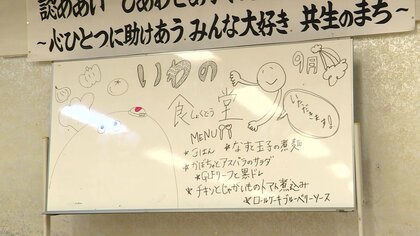 認めあい
～心ひとつに助けあう みんな大好き 共生のまち～
いわの
9月
食しょくどう堂
いただきます!
MENU
★ごはん ★なすと玉子の煮麺
★かぼちゃとアスパラのサラダ
★GLFリーフと黒ドレ
★チキンとじゃがいものトマト煮込み
★ロールケーキブルーベリーソース